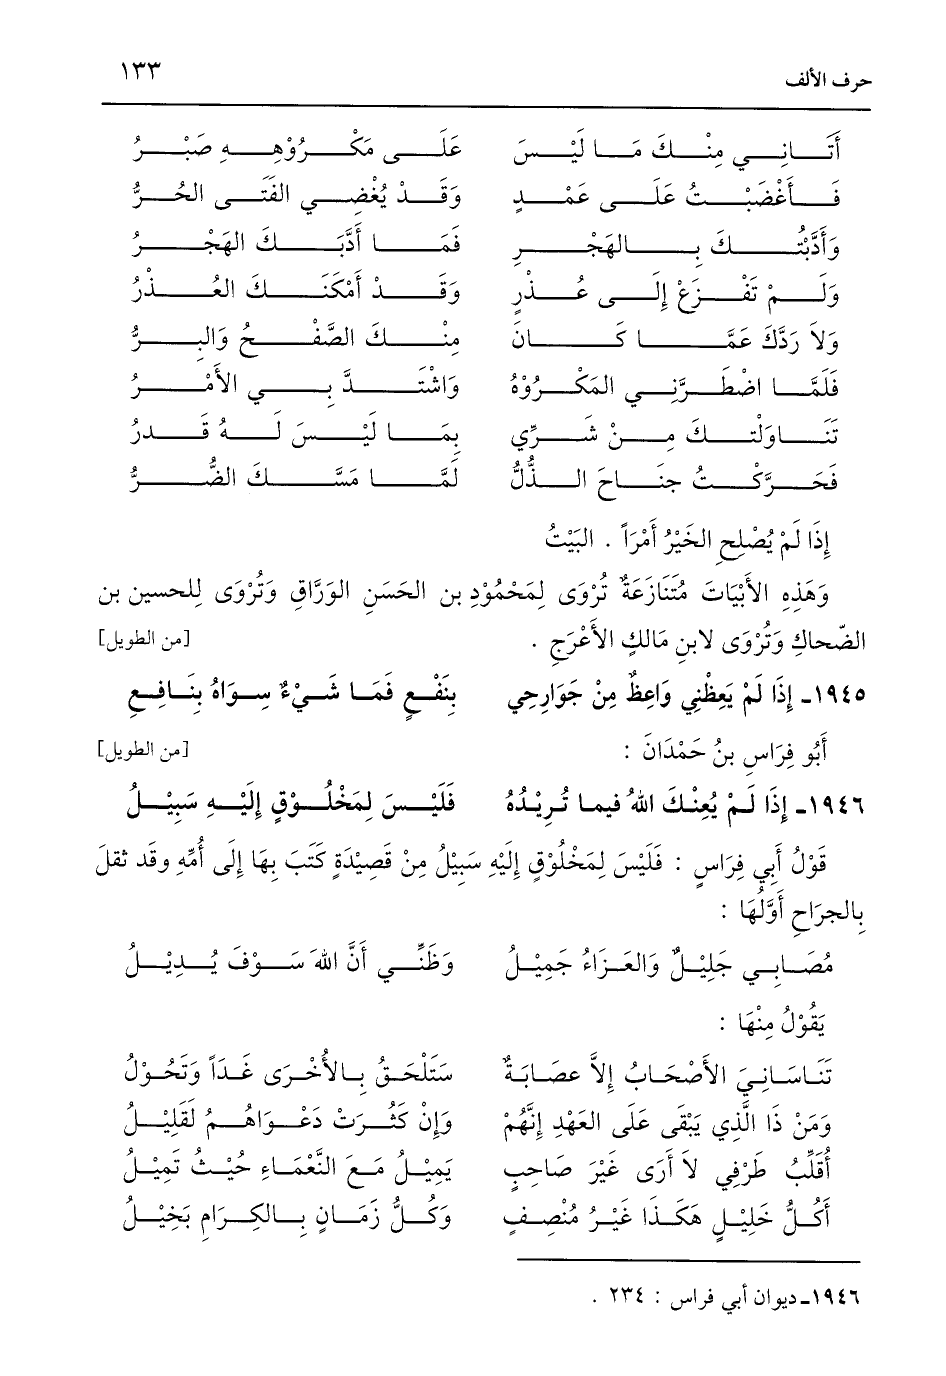 حرف الألف ١٣٣
أَتَانِي مِنْكَ مَا لَيْسَ عَلَى مَكْرُوْهِهِ صَبْرُ
فَأَغْضَبْتُ عَلَى عَمْدٍ وَقَدْ يُغْضِي الفَتَى الحُرُّ
وَأَدَّبْتُكَ بِالهَجْرِ فَمَا أَدَّبَكَ الهَجْرُ
وَلَمْ تَفْزَعْ إِلَى عُذْرٍ وَقَدْ أَمْكَنَكَ العُذْرُ
وَلاَ رَدَّكَ عَمَّا كَانَ مِنْكَ الصَّفْحُ وَالبِرُّ
فَلَمَّا اضْطَرَّنِي المَكْرُوْهُ وَاشْتَدَّ بِي الأَمْرُ
تَنَاوَلْتُكَ مِنْ شَرِّي بِمَا لَيْسَ لَهُ قَدرُ
فَحَرَّكْتُ جنَاحَ الذُّلُّ لَمَّا مَسَّكَ الضُّرُّ
إِذَا لَمْ يُصْلِحِ الخَيْرُ أَمْرَاً . البَيْتُ
وَهَذِهِ الأَبْيَاتَ مُتَنَازَعَةٌ تُرْوَى لِمَحْمُوْدِ بن الحَسَنِ الوَرَّاقِ وَتُرْوَى لِلحسين بن
الضّحاكِ وَتُرْوَى لابنِ مَالكٍ الأَعْرَجِ . [من الطويل]
١٩٤٥ـ إِذَا لَمْ يَعِظْنِي وَاعِظٌ مِنْ جَوَارِحِي بِنَفْعٍ فَمَا شَيْءٌ سِوَاهُ بِنَافِعِ
أَبُو فِرَاسِ بنُ حَمْدَانَ : [من الطويل]
١٩٤٦ـ إِذَا لَمْ يُعِنْكَ اللهُ فيما تُرِيْدُهُ فَلَيْسَ لِمَخْلُوْقٍ إِلَيْهِ سَبِيْلُ
قَوْلُ أَبِي فِرَاسٍ : فَلَيْسَ لِمَخْلُوْقٍ إِلَيْهِ سَبِيْلُ مِنْ قَصِيْدَةٍ كَتَبَ بِهَا إِلَى أُمِّهِ وقَد ثقلَ
بِالجرَاحِ أَوَّلُهَا :
مُصَابِي جَلِيْلٌ وَالعَزَاءُ جَمِيْلُ وَظَنِّي أَنَّ اللهَ سَوْفَ يُدِيْلُ
يَقُوْلُ مِنْهَا :
تَنَاسَانِيَ الأَصْحَابُ إِلاَّ عصَابَةٌ سَتَلْحَقُ بِالأُخْرَى غَدَاً وَتَحُوْلُ
وَمَنْ ذَا الَّذِي يَبْقَى عَلَى العَهْدِ إِنَّهُمْ وَإِنْ كَثُرَتْ دَعْوَاهُمُ لَقَلِيْلُ
أُقَلِّبُ طَرْفِي لاَ أَرَى غَيْرَ صَاحِبٍ يَمِيْلُ مَعَ النَّعْمَاءِ حَيْثُ تَمِيْلُ
أَكُلُّ خَلِيْلٍ هَكَذَا غَيْرُ مُنْصِفٍ وَكُلُّ زَمَانٍ بِالكِرَامِ بَخِيْلُ
١٩٤٦ـ ديوان أبي فراس : ٢٣٤ .